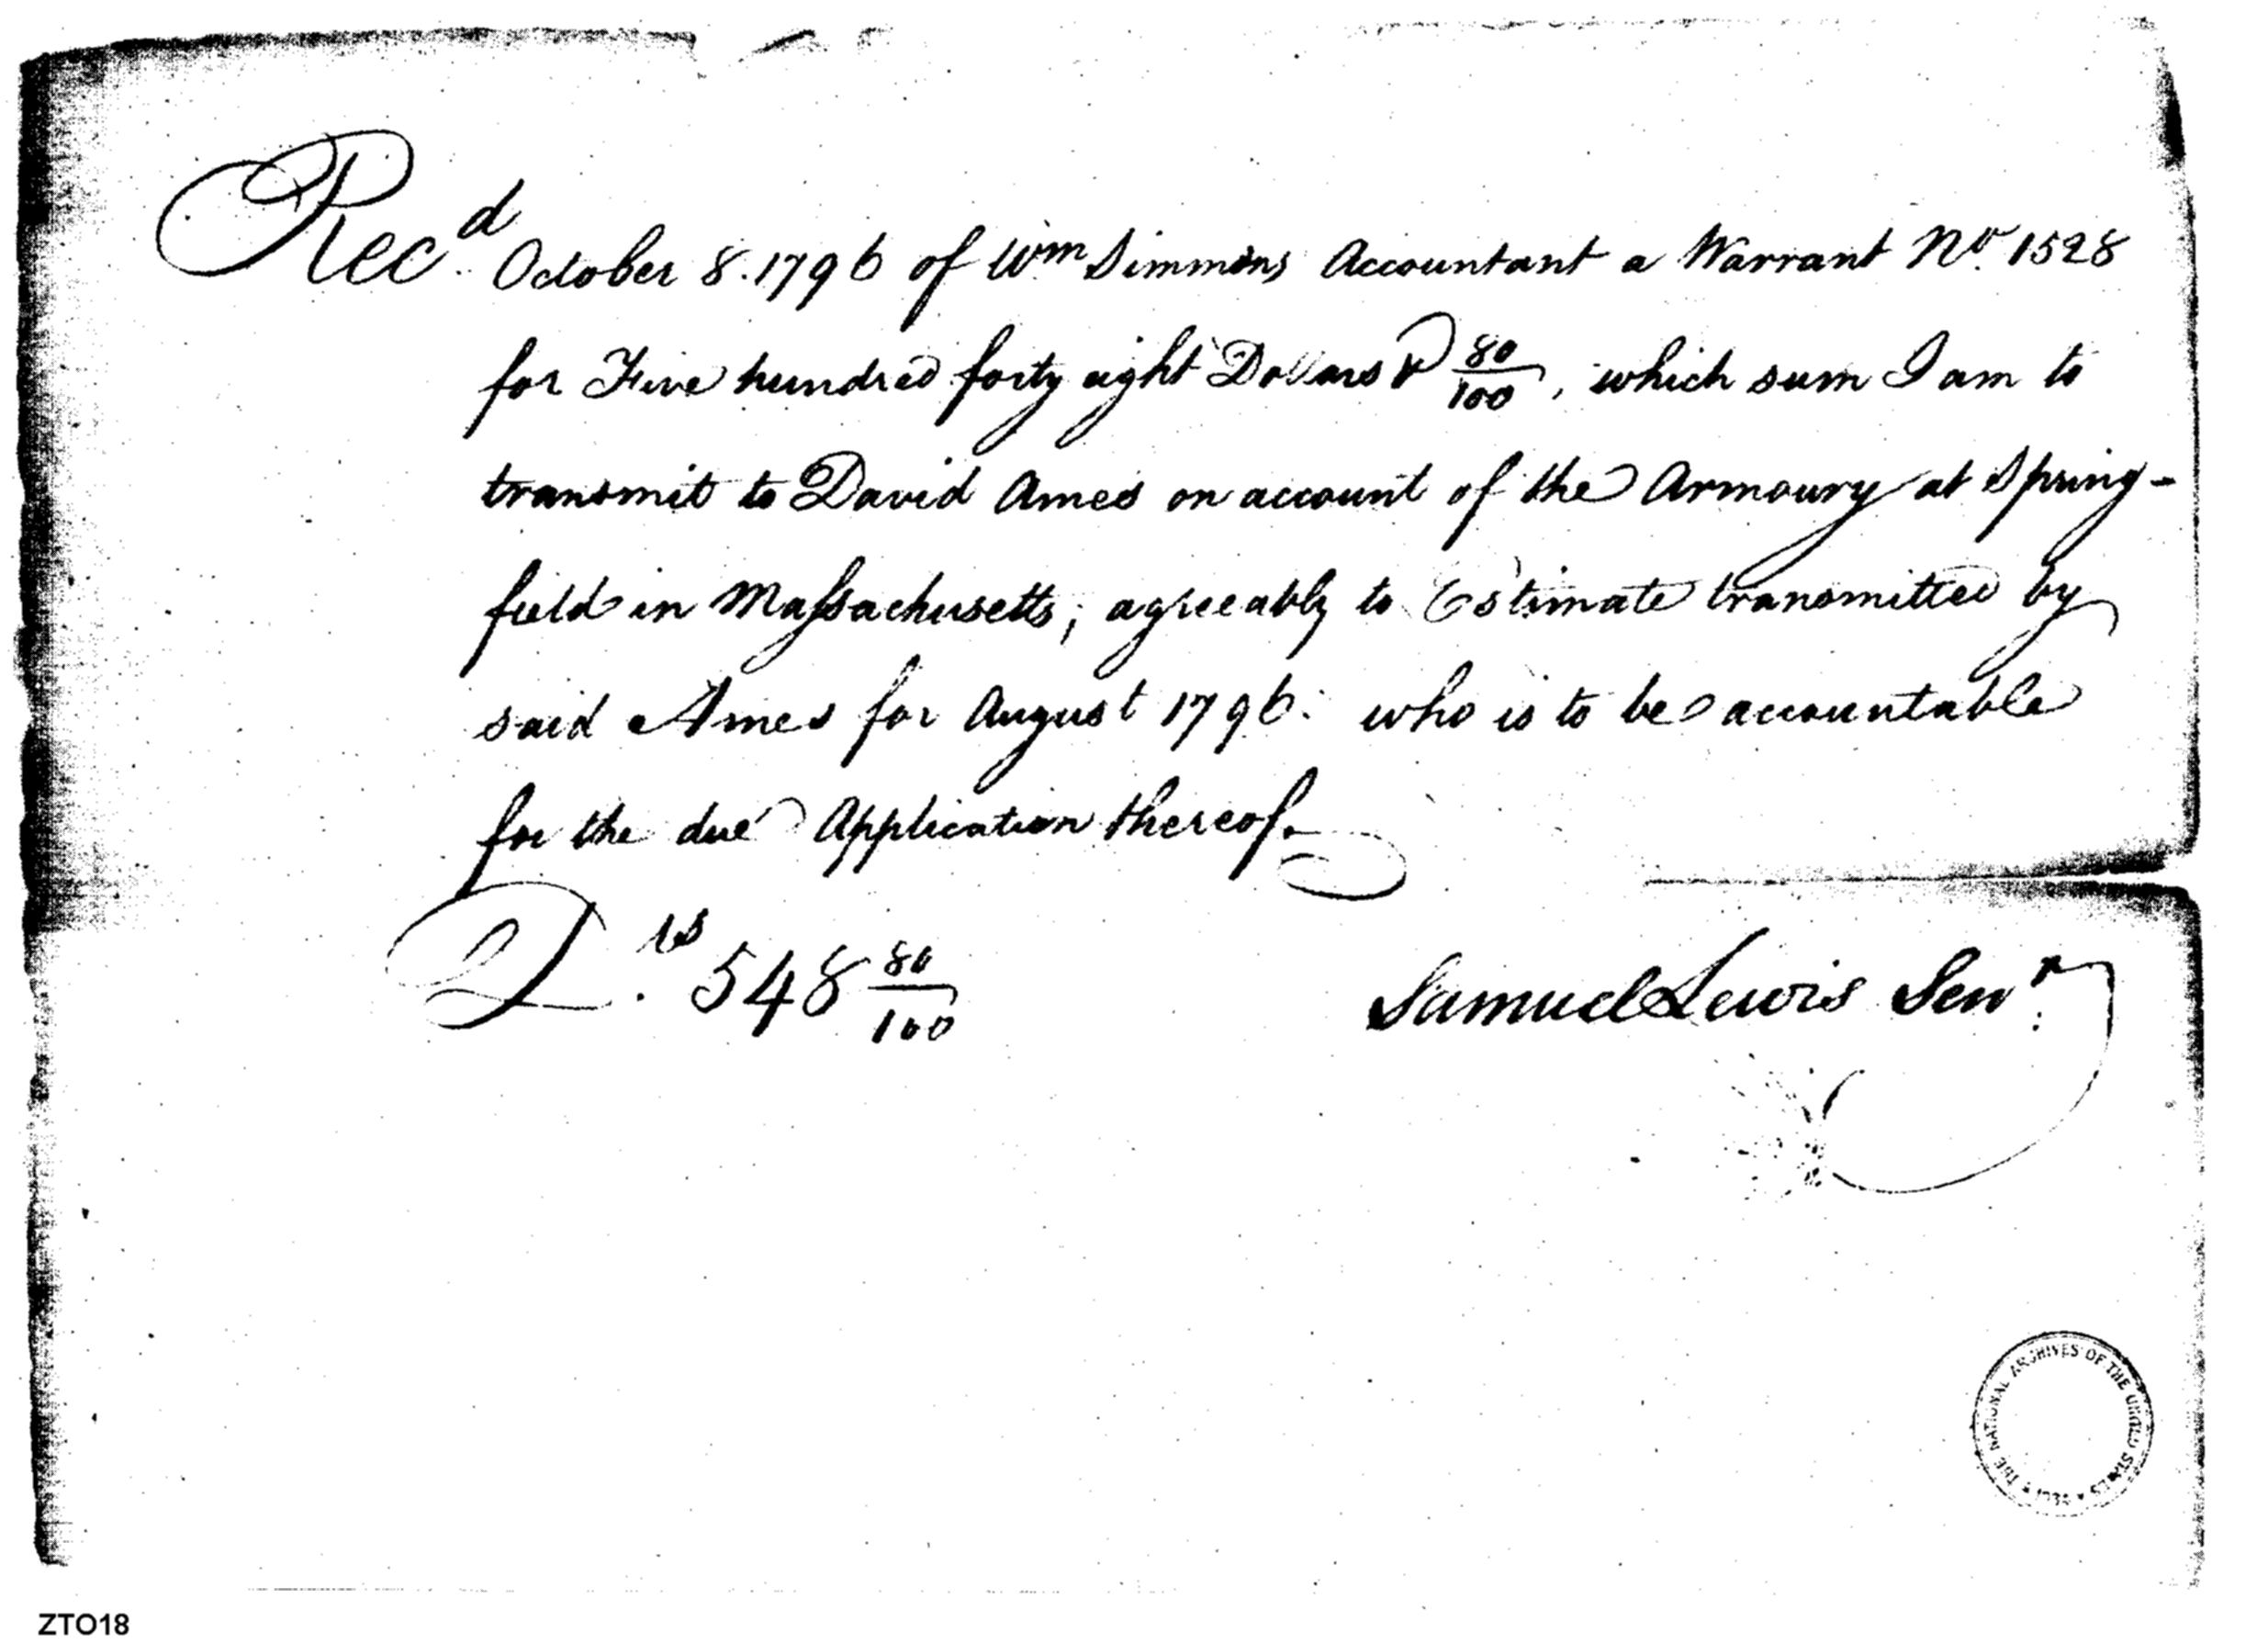 Recd. October 8. 1796 of Wm Simmons Accountant a Warrant No. 1528
for Five hundred forty eight Dollars & 80/100, which sum I am to
transmit to David Ames on account of the Armoury at Spring-
field in Massachusetts; agreeably to Estimate transmitted by
said Ames for August 1796. who is to be accountable
for the due Application thereof.
D.ls 548 80/100
Samuel Lewis Senr.
THE NATIONAL ARCHIVES OF THE UNITED STATES * 1934 *
ZTO18